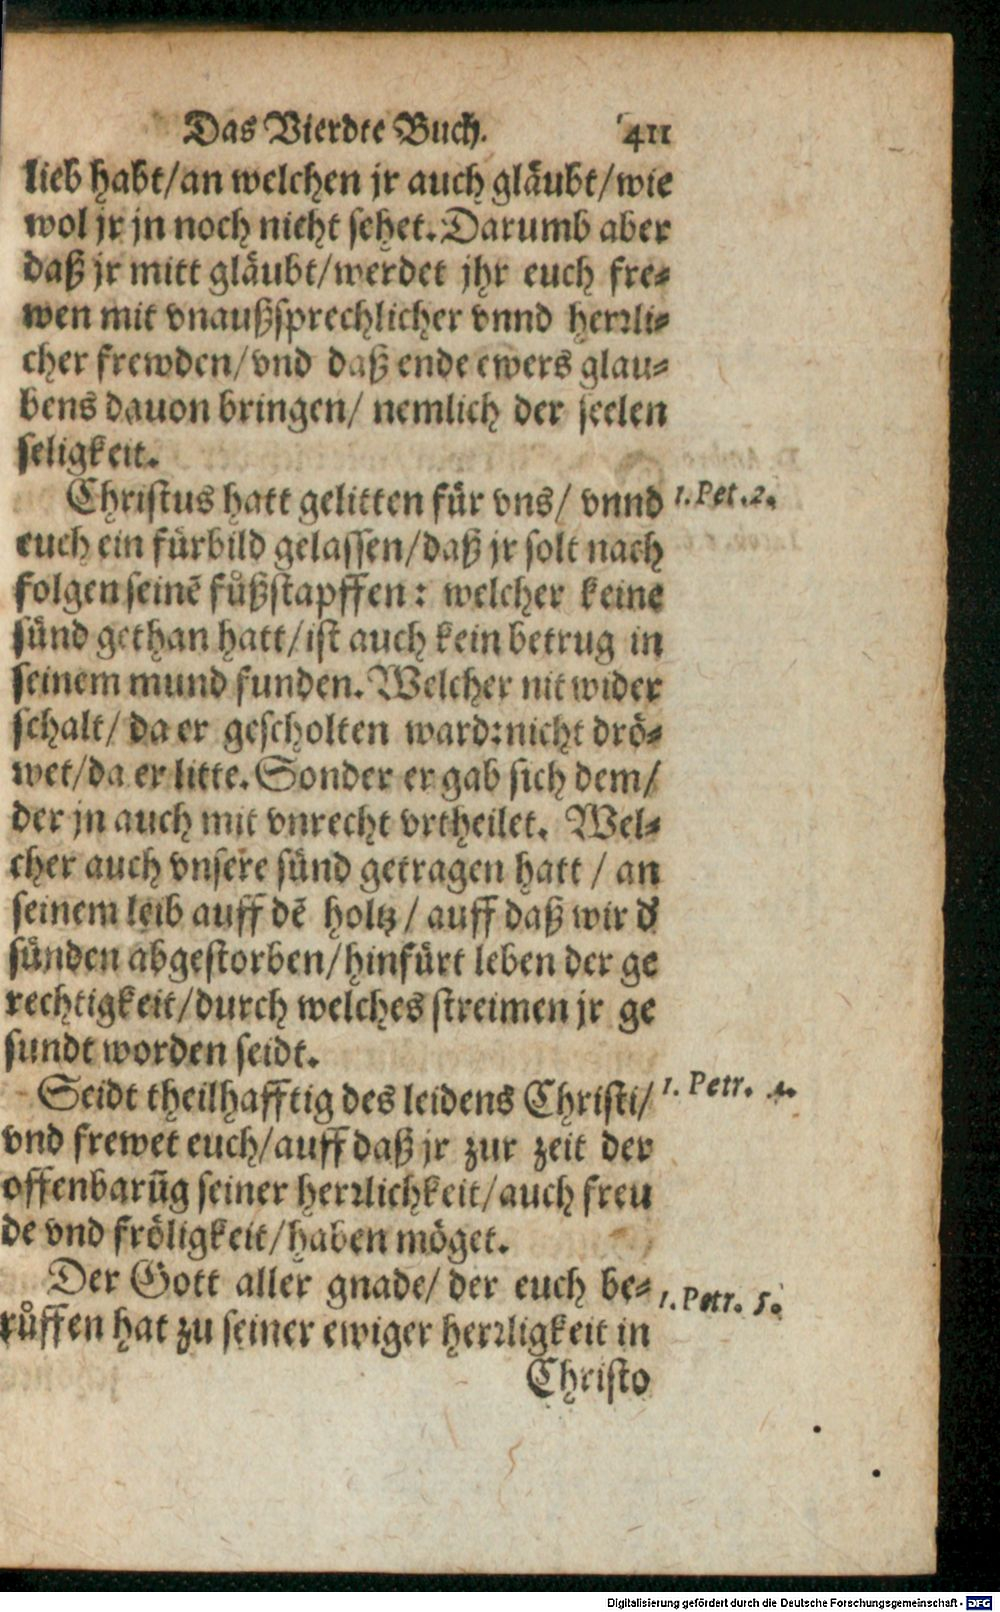 Das Vierdte Buch. 411
lieb habt/an welchen jr auch gläubt/wie
wol jr jn noch nicht sehet. Darumb aber
daß jr mitt gläubt/werdet jhr euch fre-
wen mit vnaußsprechlicher vnnd herrli-
cher frewden/vnd daß ende ewers glau-
bens dauon bringen/ nemlich der seelen
seligkeit.
Christus hatt gelitten für vns/ vnnd 1. Pet. 2.
euch ein fürbild gelassen/daß jr solt nach
folgen seinē fůßstapffen: welcher keine
sünd gethan hatt/ist auch kein betrug in
seinem mund funden. Welcher nit wider
schalt/ da er gescholten ward:nicht drö-
wet/da er litte. Sonder er gab sich dem/
der jn auch mit vnrecht vrtheilet. Wel-
cher auch vnsere sünd getragen hatt / an
seinem leib auff dē holtz/ auff daß wir d'
sünden abgestorben/hinfürt leben der ge
rechtigkeit/durch welches streimen jr ge
sundt worden seidt.
Seidt theilhafftig des leidens Christi/ 1. Petr. 4.
vnd frewet euch/auff daß jr zur zeit der
offenbarūg seiner herrlichkeit/auch freu
de vnd fröligkeit/haben möget.
Der Gott aller gnade/ der euch be- 1. Petr. 5.
růffen hat zu seiner ewiger herrligkeit in
Christo
Digitalisierung gefördert durch die Deutsche Forschungsgemeinschaft - DFG